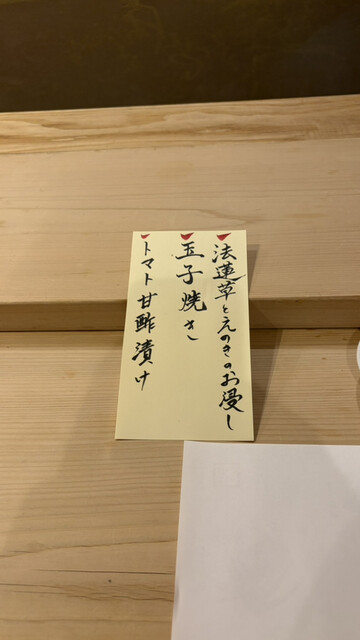 法蓮草とえのきのお浸し
玉子焼き
トマト甘酢漬け